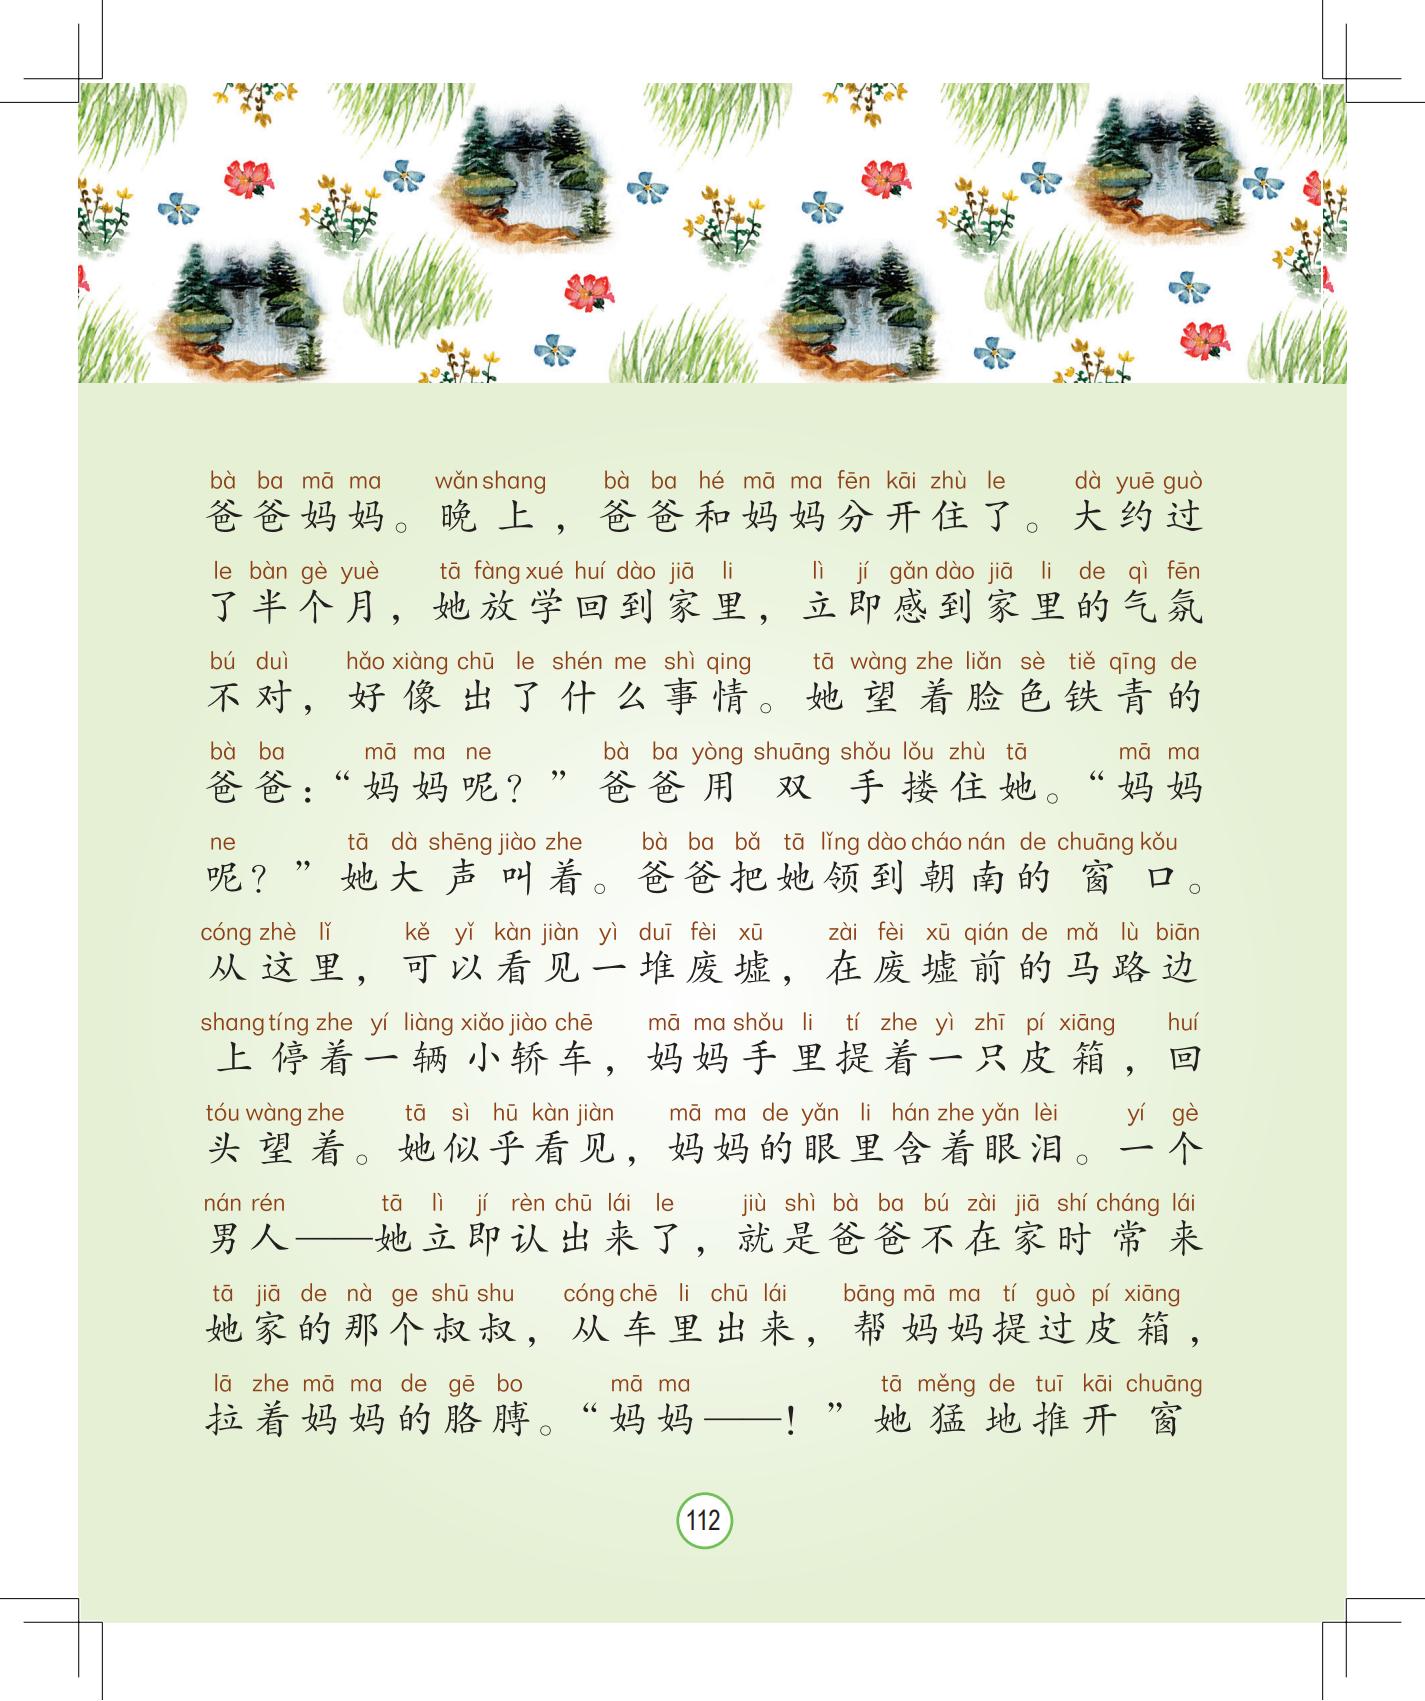 bà ba mā ma wǎn shang bà ba hé mā ma fēn kāi zhù le dà yuē guò
爸爸妈妈。晚上，爸爸和妈妈分开住了。大约过
le bàn gè yuè tā fàng xué huí dào jiā li lì jí gǎn dào jiā li de qì fēn
了半个月，她放学回到家里，立即感到家里的气氛
bú duì hǎo xiàng chū le shén me shì qing tā wàng zhe liǎn sè tiě qīng de
不对，好像出了什么事情。她望着脸色铁青的
bà ba mā ma ne bà ba yòng shuāng shǒu lǒu zhù tā mā ma
爸爸：“妈妈呢？”爸爸用双手搂住她。“妈妈
ne tā dà shēng jiào zhe bà ba bǎ tā lǐng dào cháo nán de chuāng kǒu
呢？”她大声叫着。爸爸把她领到朝南的窗口。
cóng zhè lǐ kě yǐ kàn jiàn yì duī fèi xū zài fèi xū qián de mǎ lù biān
从这里，可以看见一堆废墟，在废墟前的马路边
shang tíng zhe yí liàng xiǎo jiào chē mā ma shǒu li tí zhe yì zhī pí xiāng huí
上停着一辆小轿车，妈妈手里提着一只皮箱，回
tóu wàng zhe tā sì hū kàn jiàn mā ma de yǎn li hán zhe yǎn lèi yí gè
头望着。她似乎看见，妈妈的眼里含着眼泪。一个
nán rén tā lì jí rèn chū lái le jiù shì bà ba bú zài jiā shí cháng lái
男人——她立即认出来了，就是爸爸不在家时常来
tā jiā de nà ge shū shu cóng chē li chū lái bāng mā ma tí guò pí xiāng
她家的那个叔叔，从车里出来，帮妈妈提过皮箱，
lā zhe mā ma de gē bo mā ma tā měng de tuī kāi chuāng
拉着妈妈的胳膊。“妈妈——！”她猛地推开窗
112